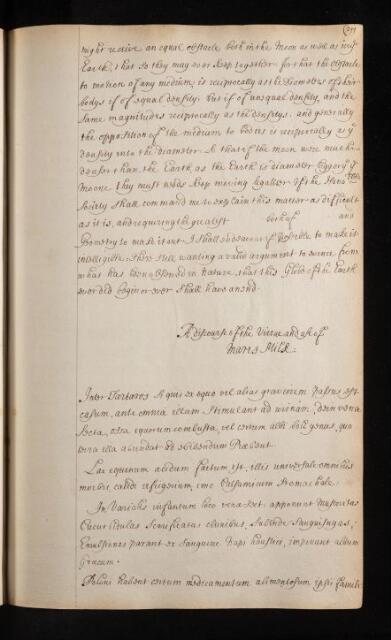 might receive an equal obstacle both in the Moon as well as in ye
Earth, that so they may ever keep together for that the obstacle
to motion of any medium, is reciprocally as the Diameters of their
bodys if of equal density. But if of unequal density, and the
same magnitudes reciprocally as the densitys. and generally
the opposition of the medium to bodies is reciprocally as ye
density into the diameter. So that if the moon were much
denser than the Earth, as the Earth is diameter bigger yn ye
Moone they must needs keep moving together. If the Honoble
Society shall command me to explain this matter as difficult
as it is, and requiring the greatest both of and
Geometry to make it out I shall endeavour if possible to make it
intelligible. There still wanting a valid argument to evince from
what has been observed in Nature, that this Globe of the Earth
ever did begin or ever shall have an end.
A discourse of the Virtue and use of
Mares Milk.
Inter Tartaros si quis ex equo vel alias graviorem passus est
casum, ante omnia illum stimulant ad urinam, dein vena
secta, equorum combusta, vel
illa abundat ad bibendum Præbent.
Lac equinum acidum factum est, illis universale omnibus
morbis, calidi refugerium, imo Balsamicum stomachale.
In Variolis infantum loco apponunt
Cucurbitulas Scarificatas clunibus, Subinde Sanguisugas,
Emulsiones parant ex Semine Napi haustus, imperant album
græcum.
Poloni habent certum medicamentum alimentosum ipsis famili-